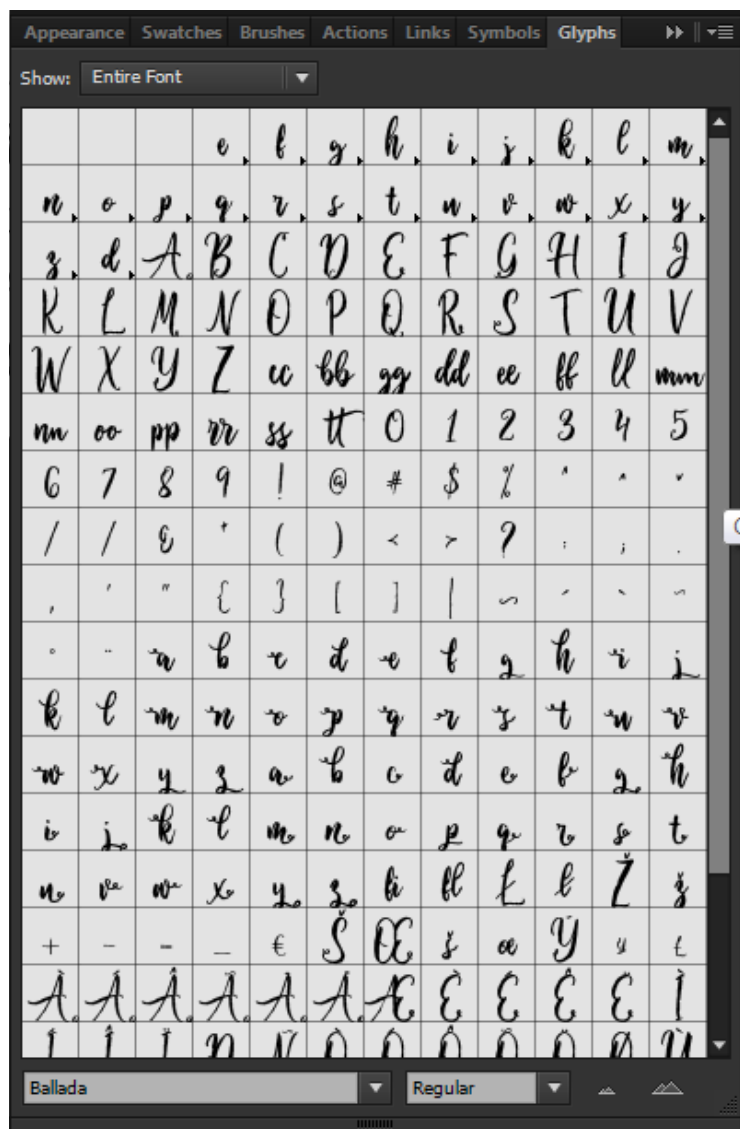 Appearance Swatches Brushes Actions Links Symbols Glyphs
Show: Entire Font
e f g h i j k l m
n o p q r s t u v w x y
z d A B C D E F G H I J
K L M N O P Q R S T U V
W X Y Z cc bb gg dd ee ff ll mm
nn oo pp rr ss tt 0 1 2 3 4 5
6 7 8 9 ! @ # $ %
/ / & ( ) < > ? : ; .
, ' " { } [ ] |
a b c d e f g h i j
k l m n o p q r s t u v
w x y z a b c d e f g h
i j k l m n o p q r s t
u v w x y z fi fl Ł ł Ž ž
+ - = _ € Š Œ š œ Ÿ £
Æ È É Ê Ë Ì
Ballada Regular